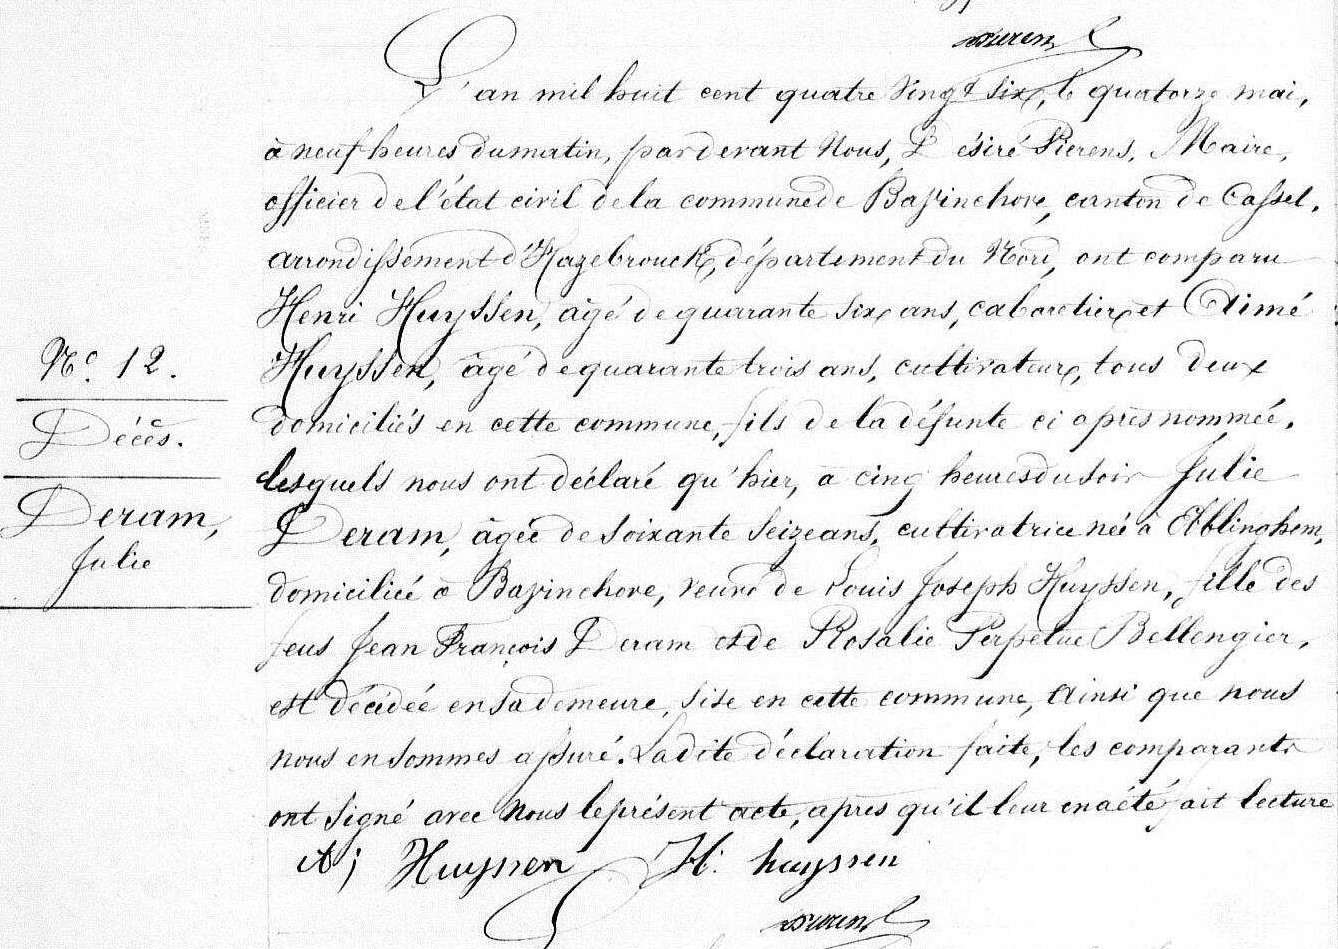 Pierens
L'an mil huit cent quatre vingt six, le quatorze mai,
à neuf heures du matin, par devant Nous, Désiré Pierens, Maire,
officier de l'état civil de la commune de Bavinchove, canton de Cassel,
arrondissement d'Hazebrouck, département du Nord, ont comparu
Henri Huyssen, âgé de quarante six ans, cabaretier, et Aimé
Huyssen, âgé de quarante trois ans, cultivateur, tous deux
domiciliés en cette commune, fils de la défunte ci après nommée,
lesquels nous ont déclaré qu'hier, à cinq heures du soir Julie
Deram, âgée de soixante seize ans, cultivatrice née à Ebblinghem,
domiciliée à Bavinchove, veuve de Louis Joseph Huyssen, fille des
feus Jean François Deram et de Rosalie Perpétue Bellengier,
est décédée en sa demeure, sise en cette commune, ainsi que nous
nous en sommes assuré. La dite déclaration faite, les comparants
ont signé avec Nous le présent acte, après qu'il leur en a été fait lecture
A; Huyssen H. huyssen
Pierens
No. 12.
Décès.
Deram,
Julie